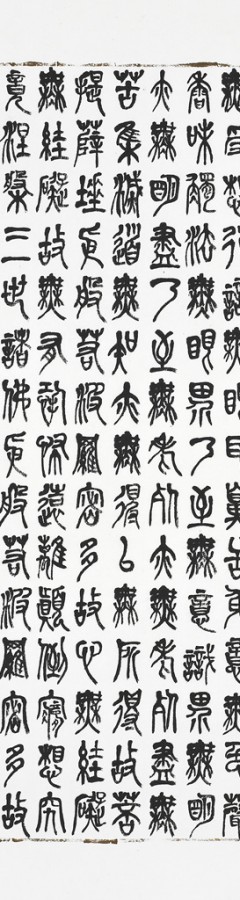 無受想行識無眼耳鼻舌身意無色聲
香味觸法無眼界乃至無意識界無明
亦無明盡乃至無老死亦無老死盡無
苦集滅道無智亦無得以無所得故菩
提薩埵依般若波羅蜜多故心無罣礙
無罣礙故無有恐怖遠離顛倒夢想究
竟涅槃三世諸佛依般若波羅蜜多故